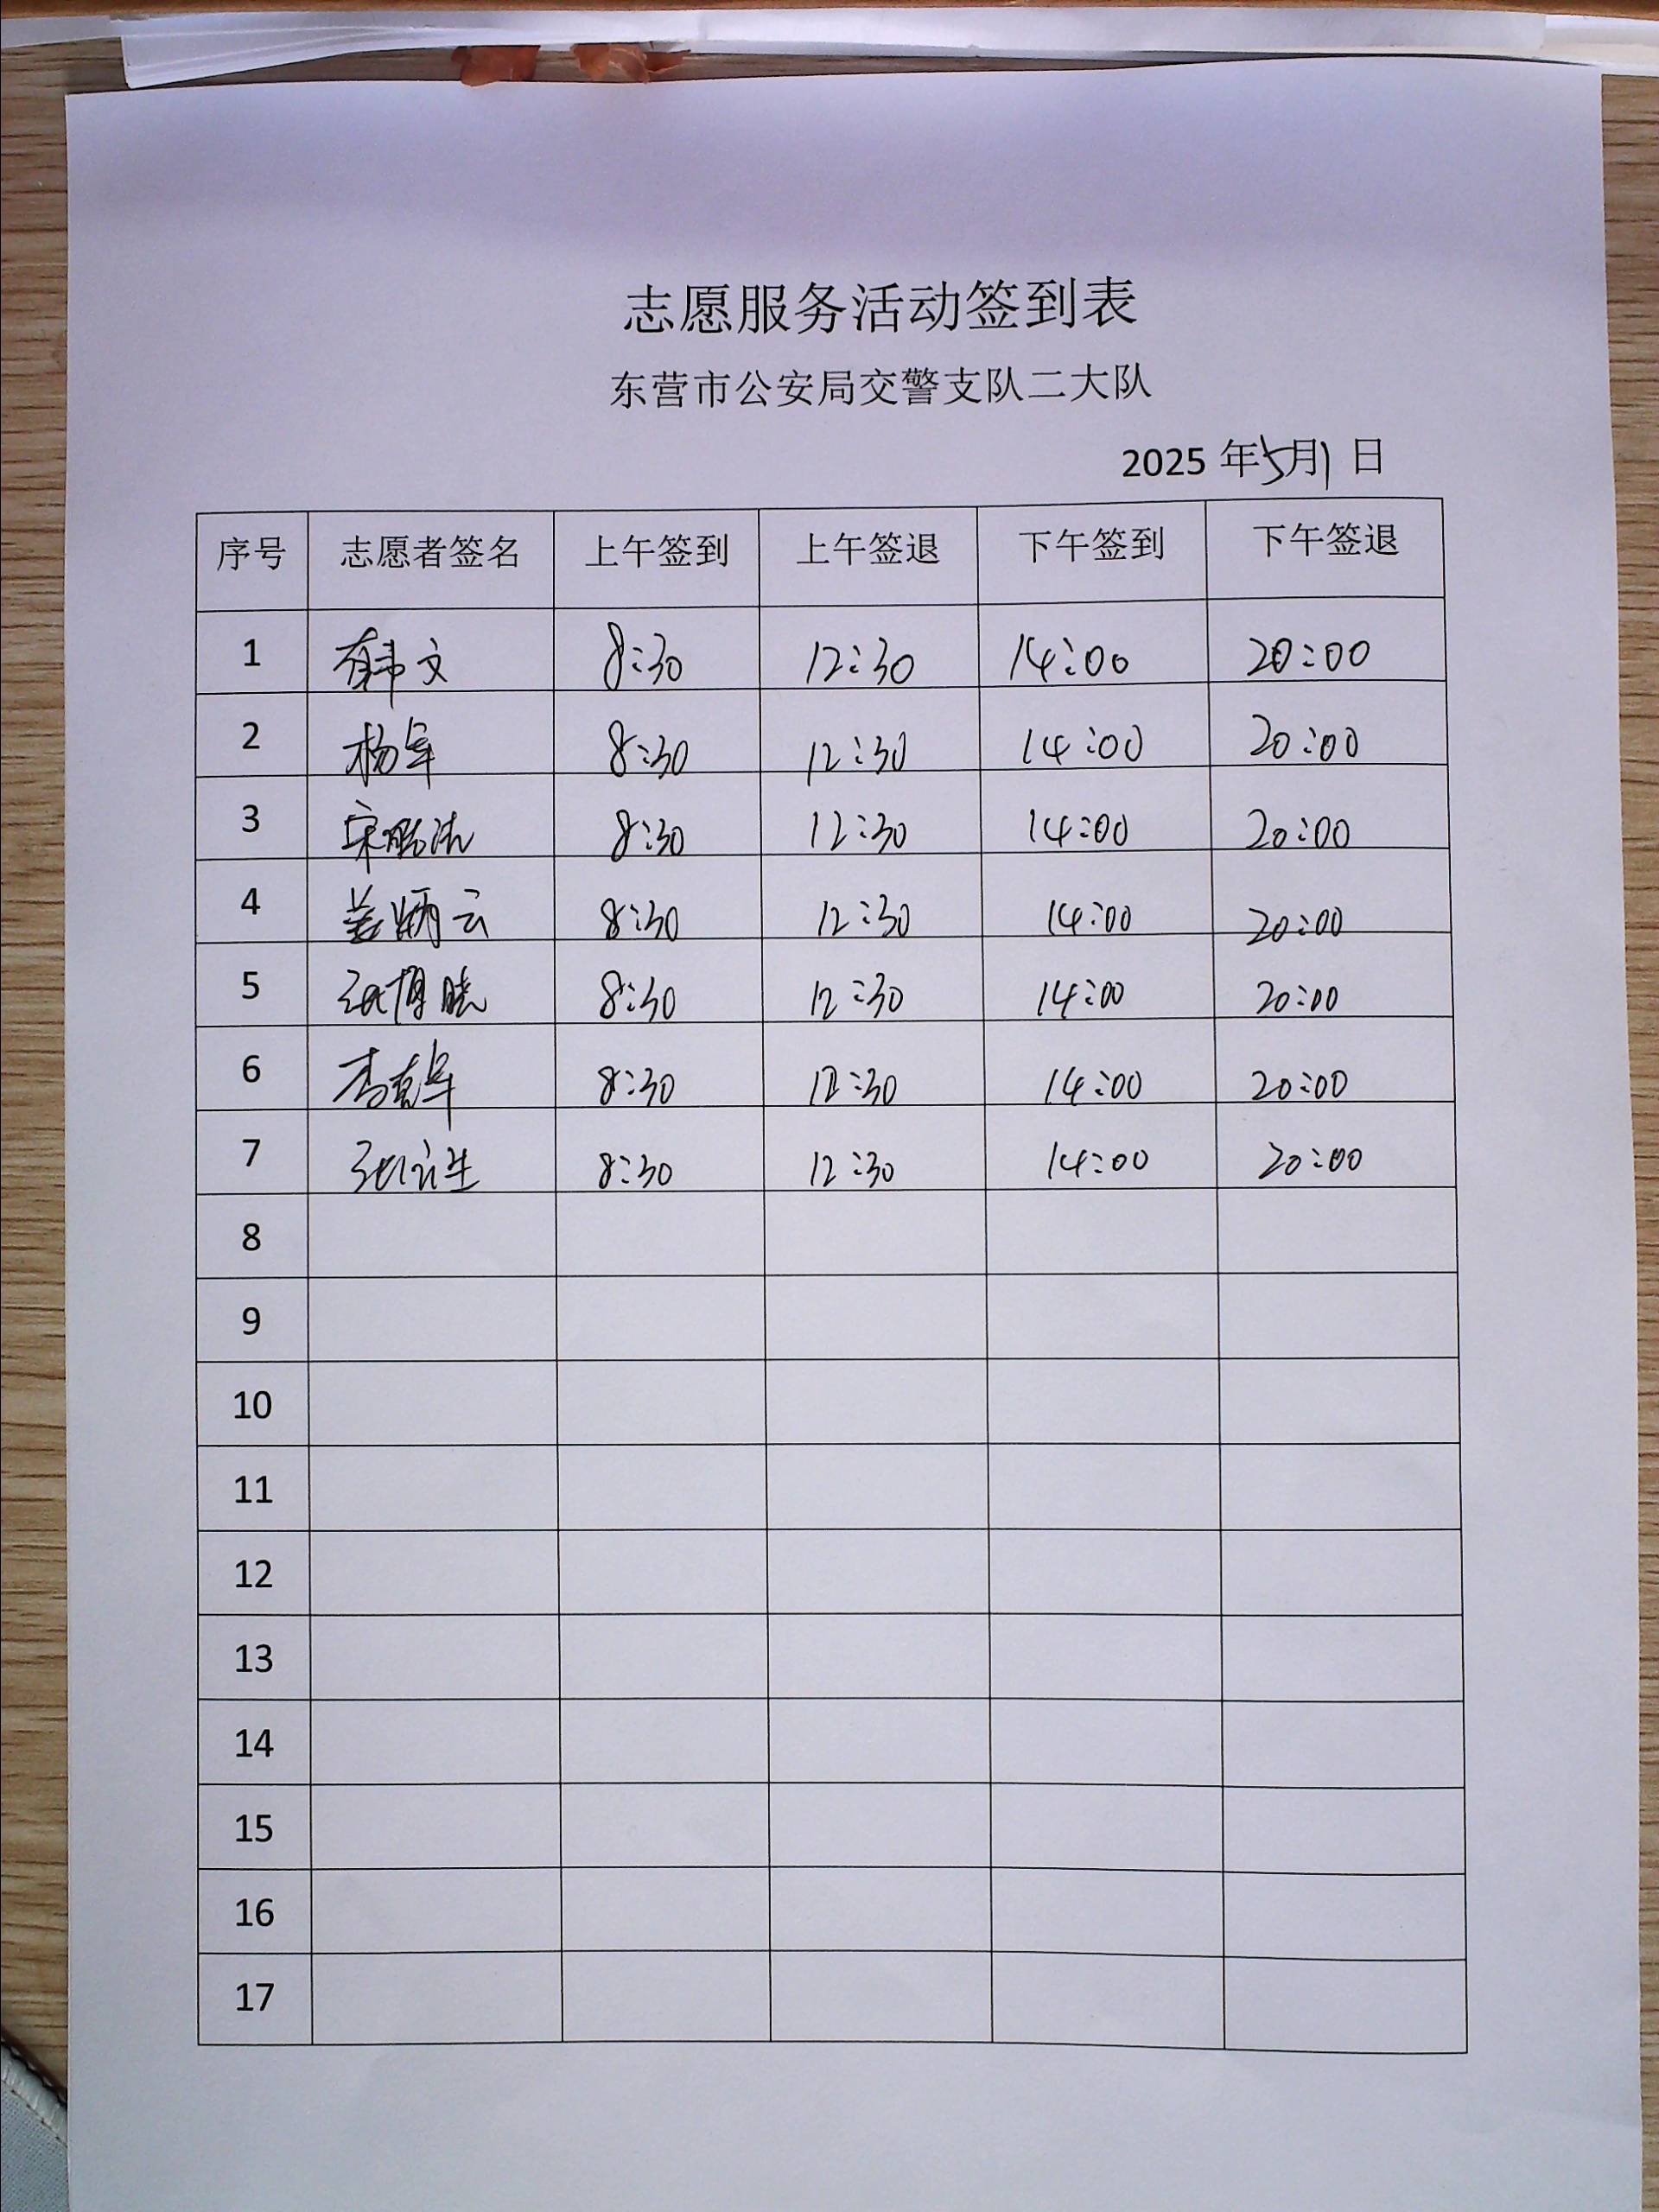 志愿服务活动签到表
东营市公安局交警支队二大队
2025 年5月1日
序号 志愿者签名 上午签到 上午签退 下午签到 下午签退
1 韩文 8:30 12:30 14:00 20:00
2 杨军 8:30 12:30 14:00 20:00
3 8:30 12:30 14:00 20:00
4 姜炳云 8:30 12:30 14:00 20:00
5 张博晓 8:30 12:30 14:00 20:00
6 8:30 12:30 14:00 20:00
7 8:30 12:30 14:00 20:00
8
9
10
11
12
13
14
15
16
17